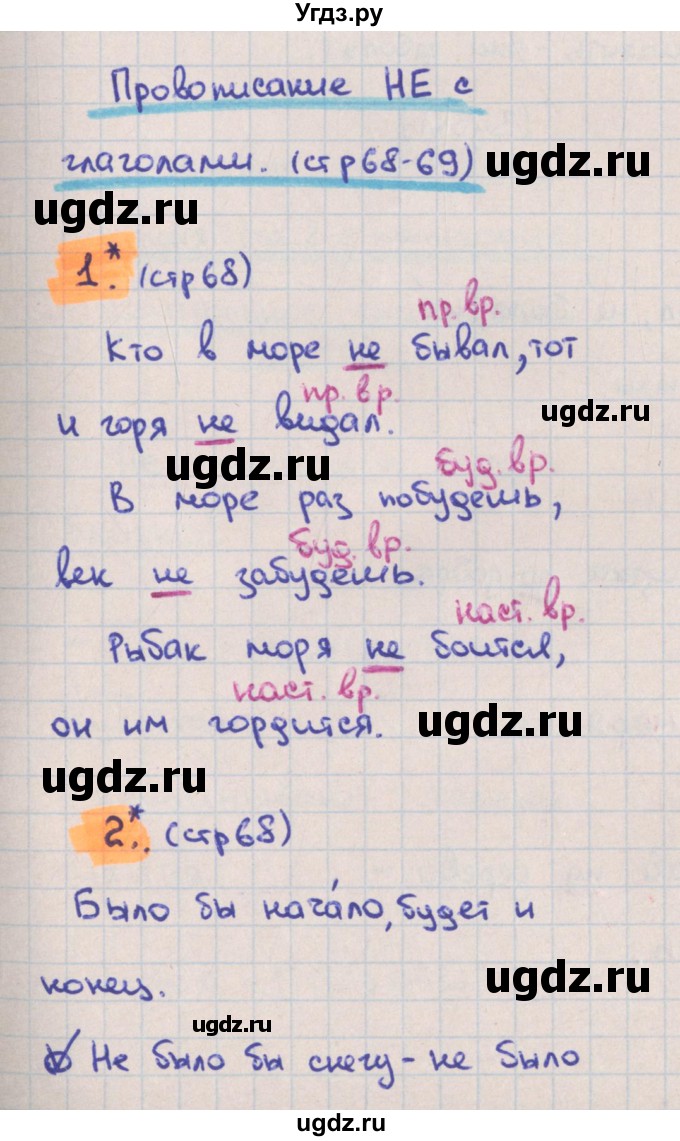 Угдз.ру
Провописание НЕ с
глаголами. (стр 68-69) ugdz.ru
ugdz.ru
1.* (стр 68)
пр. вр.
Кто в море не бывал, тот
пр. вр.
ugdz.ru
и горя не видал.
ugdz.ru
буд. вр.
В море раз побудешь,
буд. вр.
век не забудешь.
наст. вр.
Рыбак моря не боится,
наст. вр.
он им гордится. ugdz.ru
ugdz.ru
2.* (стр 68)
Было бы нача́ло, будет и
конец. ugdz.ru
ugdz.ru
Не было бы снегу - не было
ugdz.ru